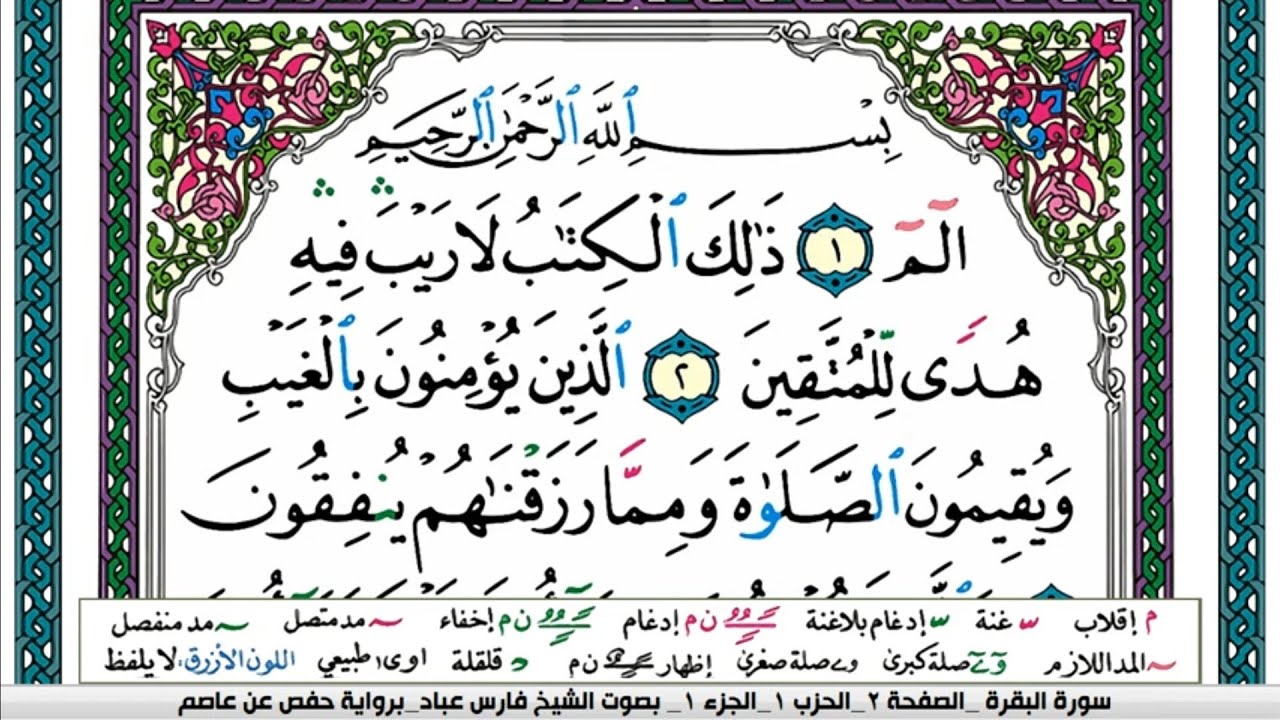 بِسْمِ ٱللَّهِ ٱلرَّحْمَٰنِ ٱلرَّحِيمِ
الٓمٓ ١ ذَٰلِكَ ٱلْكِتَٰبُ لَا رَيْبَ ۛ فِيهِ ۛ
هُدًى لِّلْمُتَّقِينَ ٢ ٱلَّذِينَ يُؤْمِنُونَ بِٱلْغَيْبِ
وَيُقِيمُونَ ٱلصَّلَوٰةَ وَمِمَّا رَزَقْنَٰهُمْ يُنفِقُونَ
م إقلاب ـ غنة ـ إدغام بلاغنة ن م إدغام ن م إخفاء ـ مد متصل ـ مد منفصل
ـ المد اللازم و ے صلة كبرى و ے صلة صغرى إظهار ن م د قلقلة اوى طبيعي اللون الأزرق: لا يلفظ
سورة البقرة _الصفحة ٢_الحزب ١_الجزء ١_ بصوت الشيخ فارس عباد_برواية حفص عن عاصم